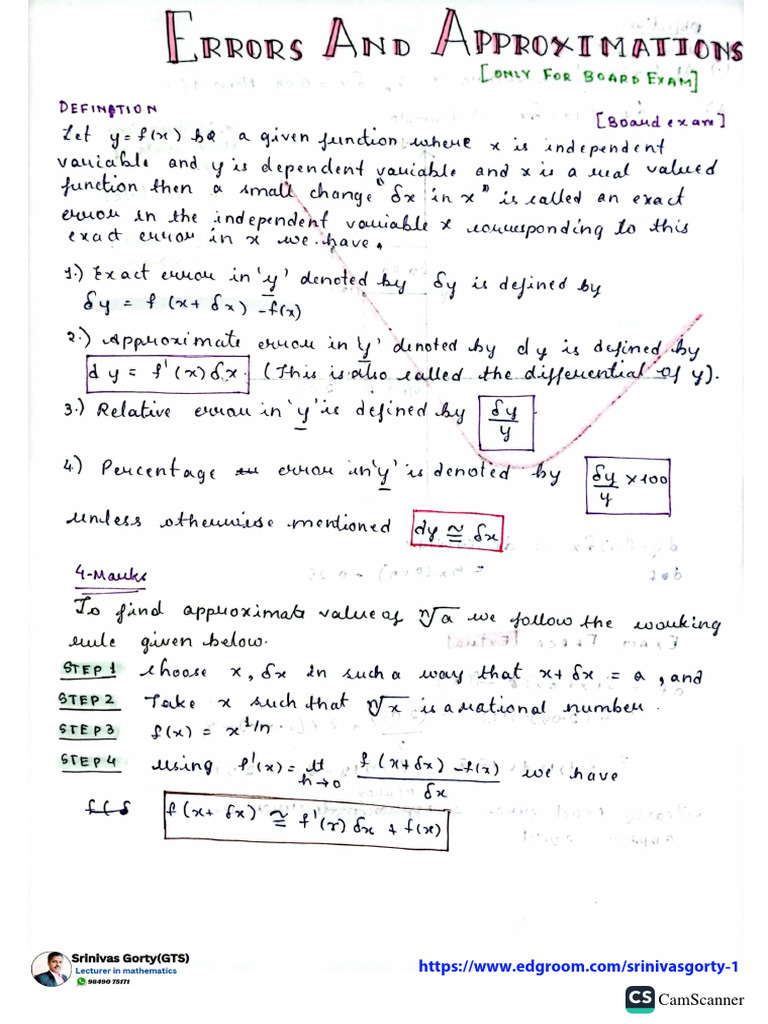 ERRORS AND APPROXIMATIONS
[ONLY FOR BOARD EXAM]
DEFINITION
[Board exam]
Let y=f(x) be a given function where x is independent
variable and y is dependent variable and x is a real valued
function then a small change "δx in x" is called an exact
error in the independent variable x corresponding to this
exact error in x we have,
1.) Exact error in 'y' denoted by δy is defined by
δy = f(x+δx) -f(x)
2.) Approximate error in 'y' denoted by dy is defined by
dy = f'(x)δx. (This is also called the differential of y).
3.) Relative error in 'y' is defined by δy/y.
4.) Percentage error in 'y' is denoted by δy/y ×100
unless otherwise mentioned dy ≅ δx
4-Marks
To find approximate value of ⁿ√a we follow the working
rule given below.
STEP 1 choose x, δx in such a way that x+δx = a, and
STEP 2 Take x such that ⁿ√x is a rational number.
STEP 3 f(x) = x^1/n.
STEP 4 using f'(x) = lt h→0 f(x+δx)-f(x)/δx we have
f(x+δx) ≅ f'(x)δx + f(x)
Srinivas Gorty(GTS)
Lecturer in mathematics
98490 75171
https://www.edgroom.com/srinivasgorty-1
CS CamScanner